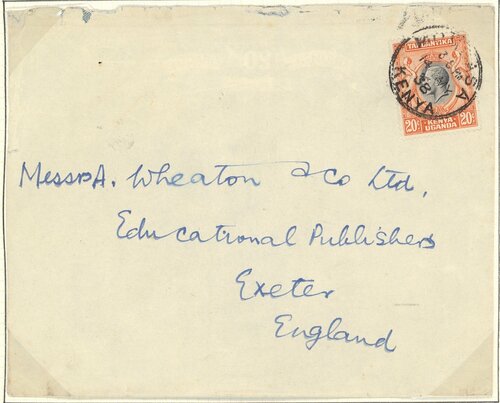 TANGANYIKA
KENYA
38
20c KENYA UGANDA 20c
Messrs A. Wheaton & Co Ltd,
Educational Publishers
Exeter
England